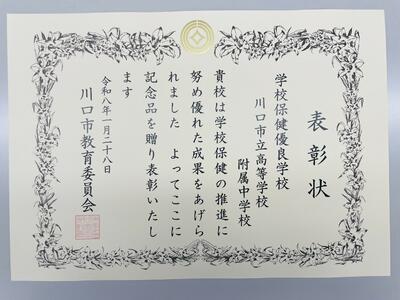 表彰状
学校保健優良学校
川口市立高等学校
附属中学校
貴校は学校保健の推進に
努め優れた成果をあげら
れました よってここに
記念品を贈り表彰いたし
ます
令和八年一月二十八日
川口市教育委員会